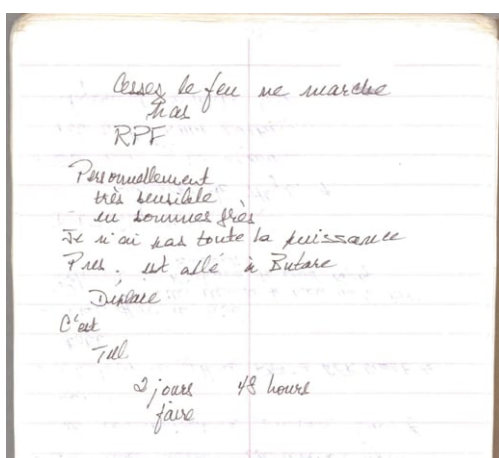 Cesses le feu ne marche
pas
RPF
Personnellement
très sensible
en sommes très
Je n'ai pas toute la puissance
Pres. est allé à Butare
Deplace
C'est
Tel
2 jours 48 hours
faire